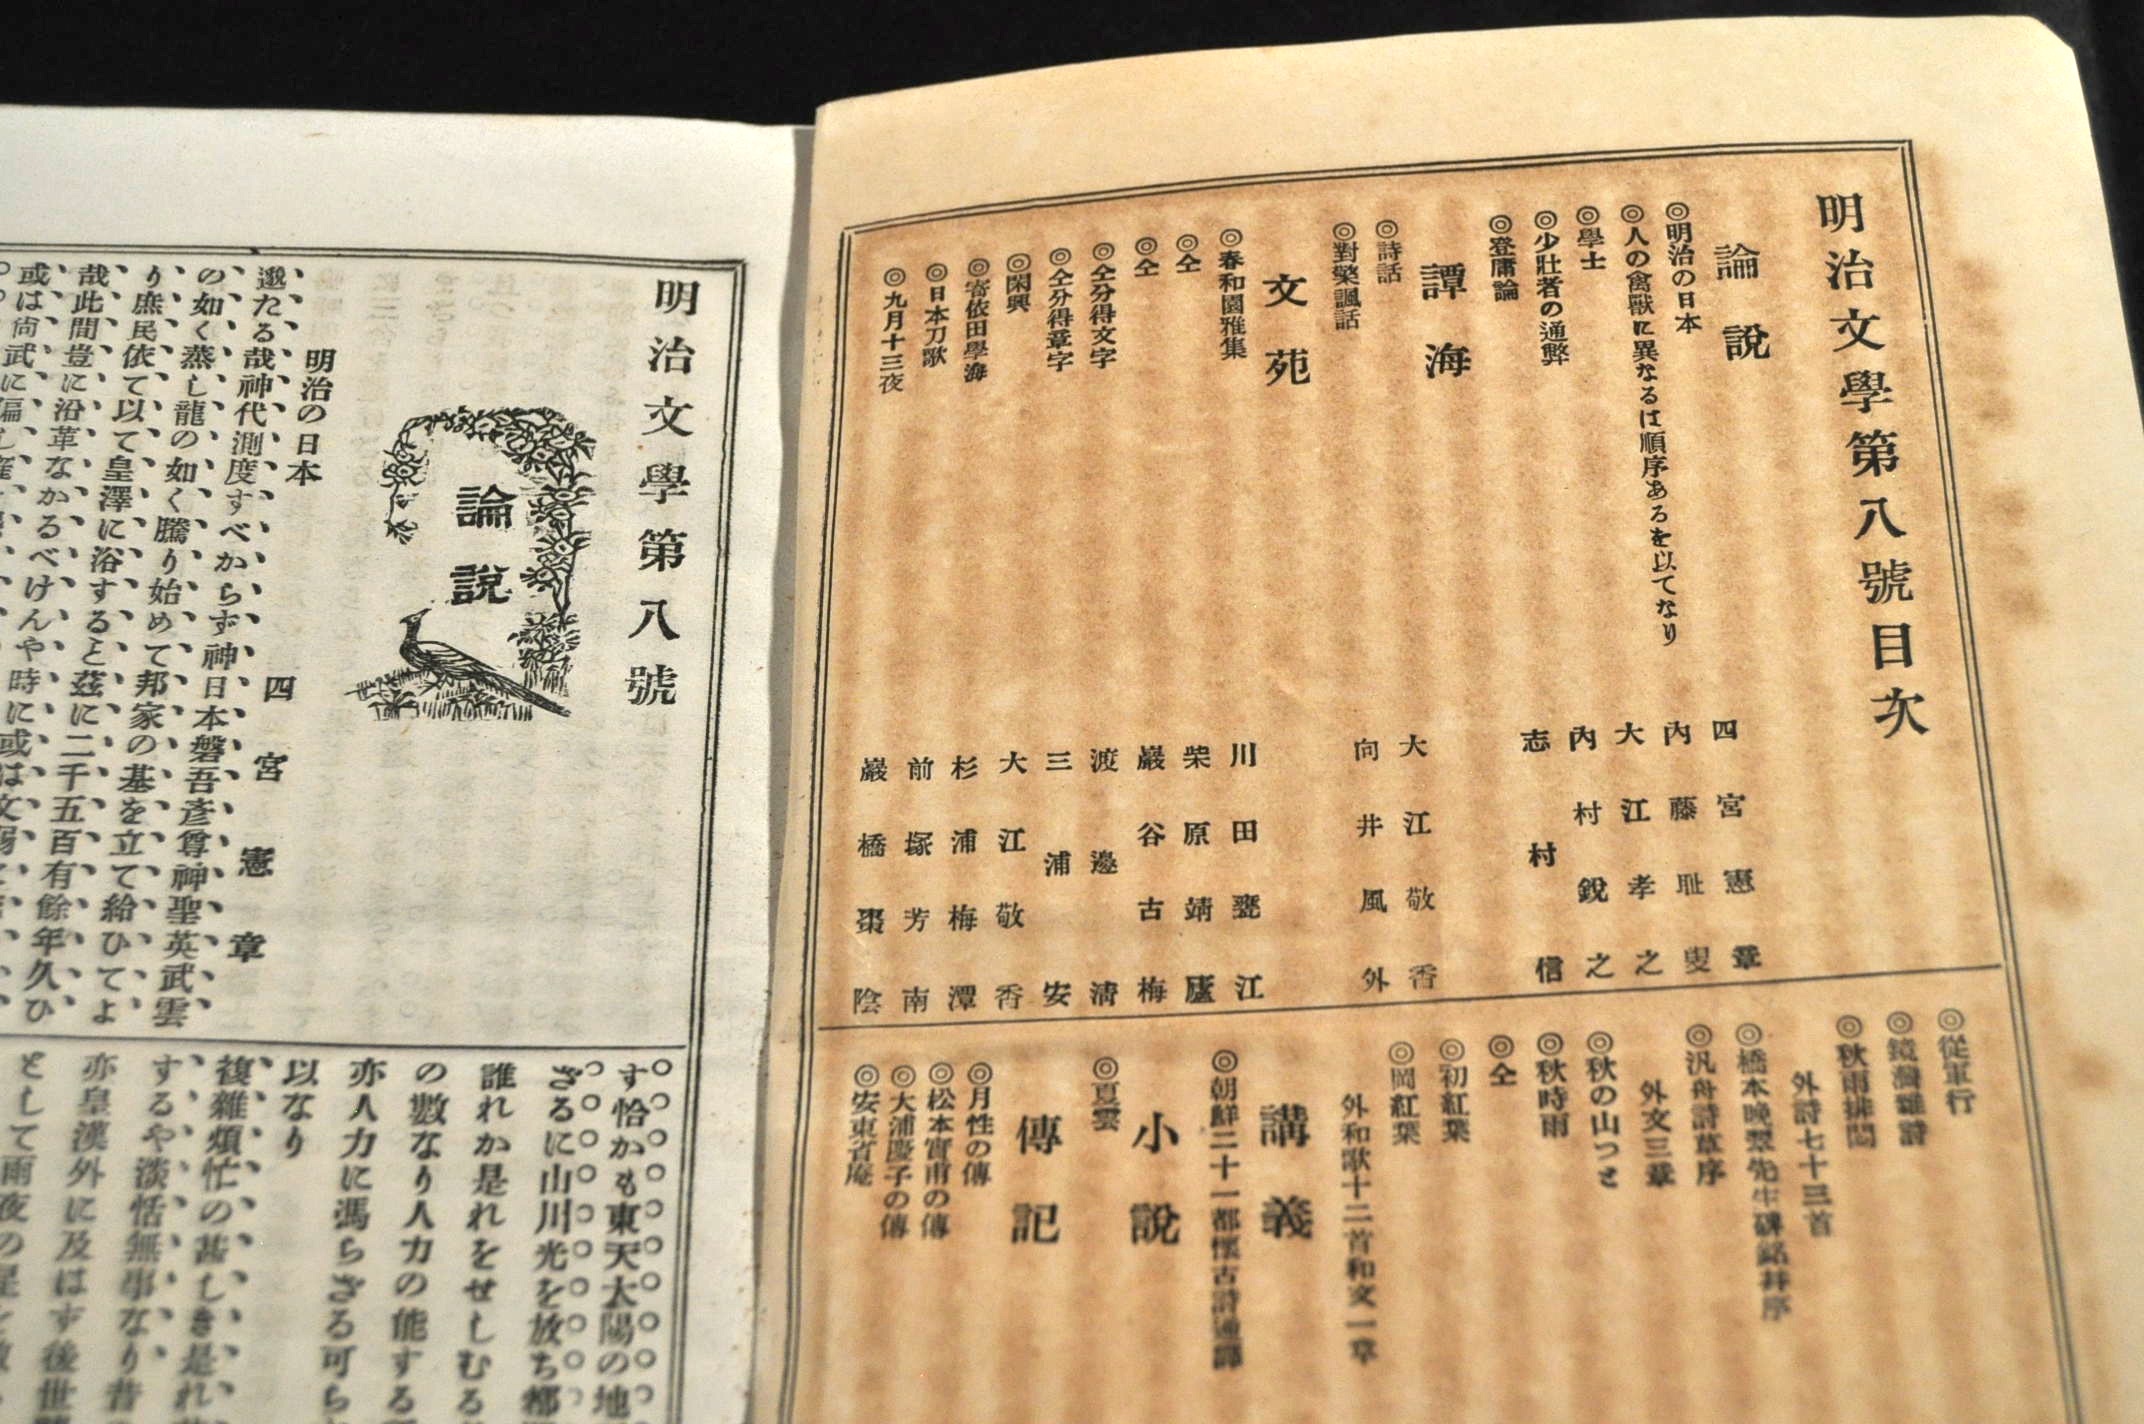 明治文學第八號目次
論說
◎明治の日本 四宮憲章
◎人の禽獸に異なるは順序あるを以てなり 内藤耻叟
◎學士 大江孝之
◎少壯者の通弊 内村銳之
◎登庸論 志村信
譚海
◎詩話 大江敬香
◎對檠諷話 向井風外
文苑
◎春和園雅集 川田甕江
◎仝 柴原靖廬
◎仝 巖谷古梅
◎仝分得文字 渡邊清
◎仝分得章字 三浦安
◎閑興 大江敬香
◎寄依田學海 杉浦梅潭
◎日本刀歌 前塚芳南
◎九月十三夜 巖橋棗陰
◎從軍行
◎鏡灣雜詩
◎秋雨排悶
外詩七十三首
◎橋本晚翠先生碑銘并序
◎汎舟詩草序
外文三章
◎秋の山つと
◎秋時雨
◎仝
◎初紅葉
◎岡紅葉
外和歌十二首和文一章
講義
◎朝鮮二十一都懷古詩通譯
小說
◎夏雲
傳記
◎月性の傳
◎松本實甫の傳
◎大浦慶子の傳
◎安東省庵
明治文學第八號
論說
明治の日本
四宮憲章
邈たる哉神代測度すべからず神日本磐吾彥尊神聖英武雲
の如く蒸し龍の如く騰り始めて邦家の基を立て給ひてよ
り庶民依て以て皇澤に浴すると茲に二千五百有餘年久ひ
哉此間豈に沿革なかるべけんや時に或は文
或は尙武に偏し
す恰かも東天太陽の地
ざるに山川光を放ち鄕
誰れか是れをせしむる
の數なり人力の能する
亦人力に馮らざる可ら
以なり
複雜煩忙の甚しき是れ
するや淡恬無事なり昔
亦皇漢外に及はす後世
として雨夜の星